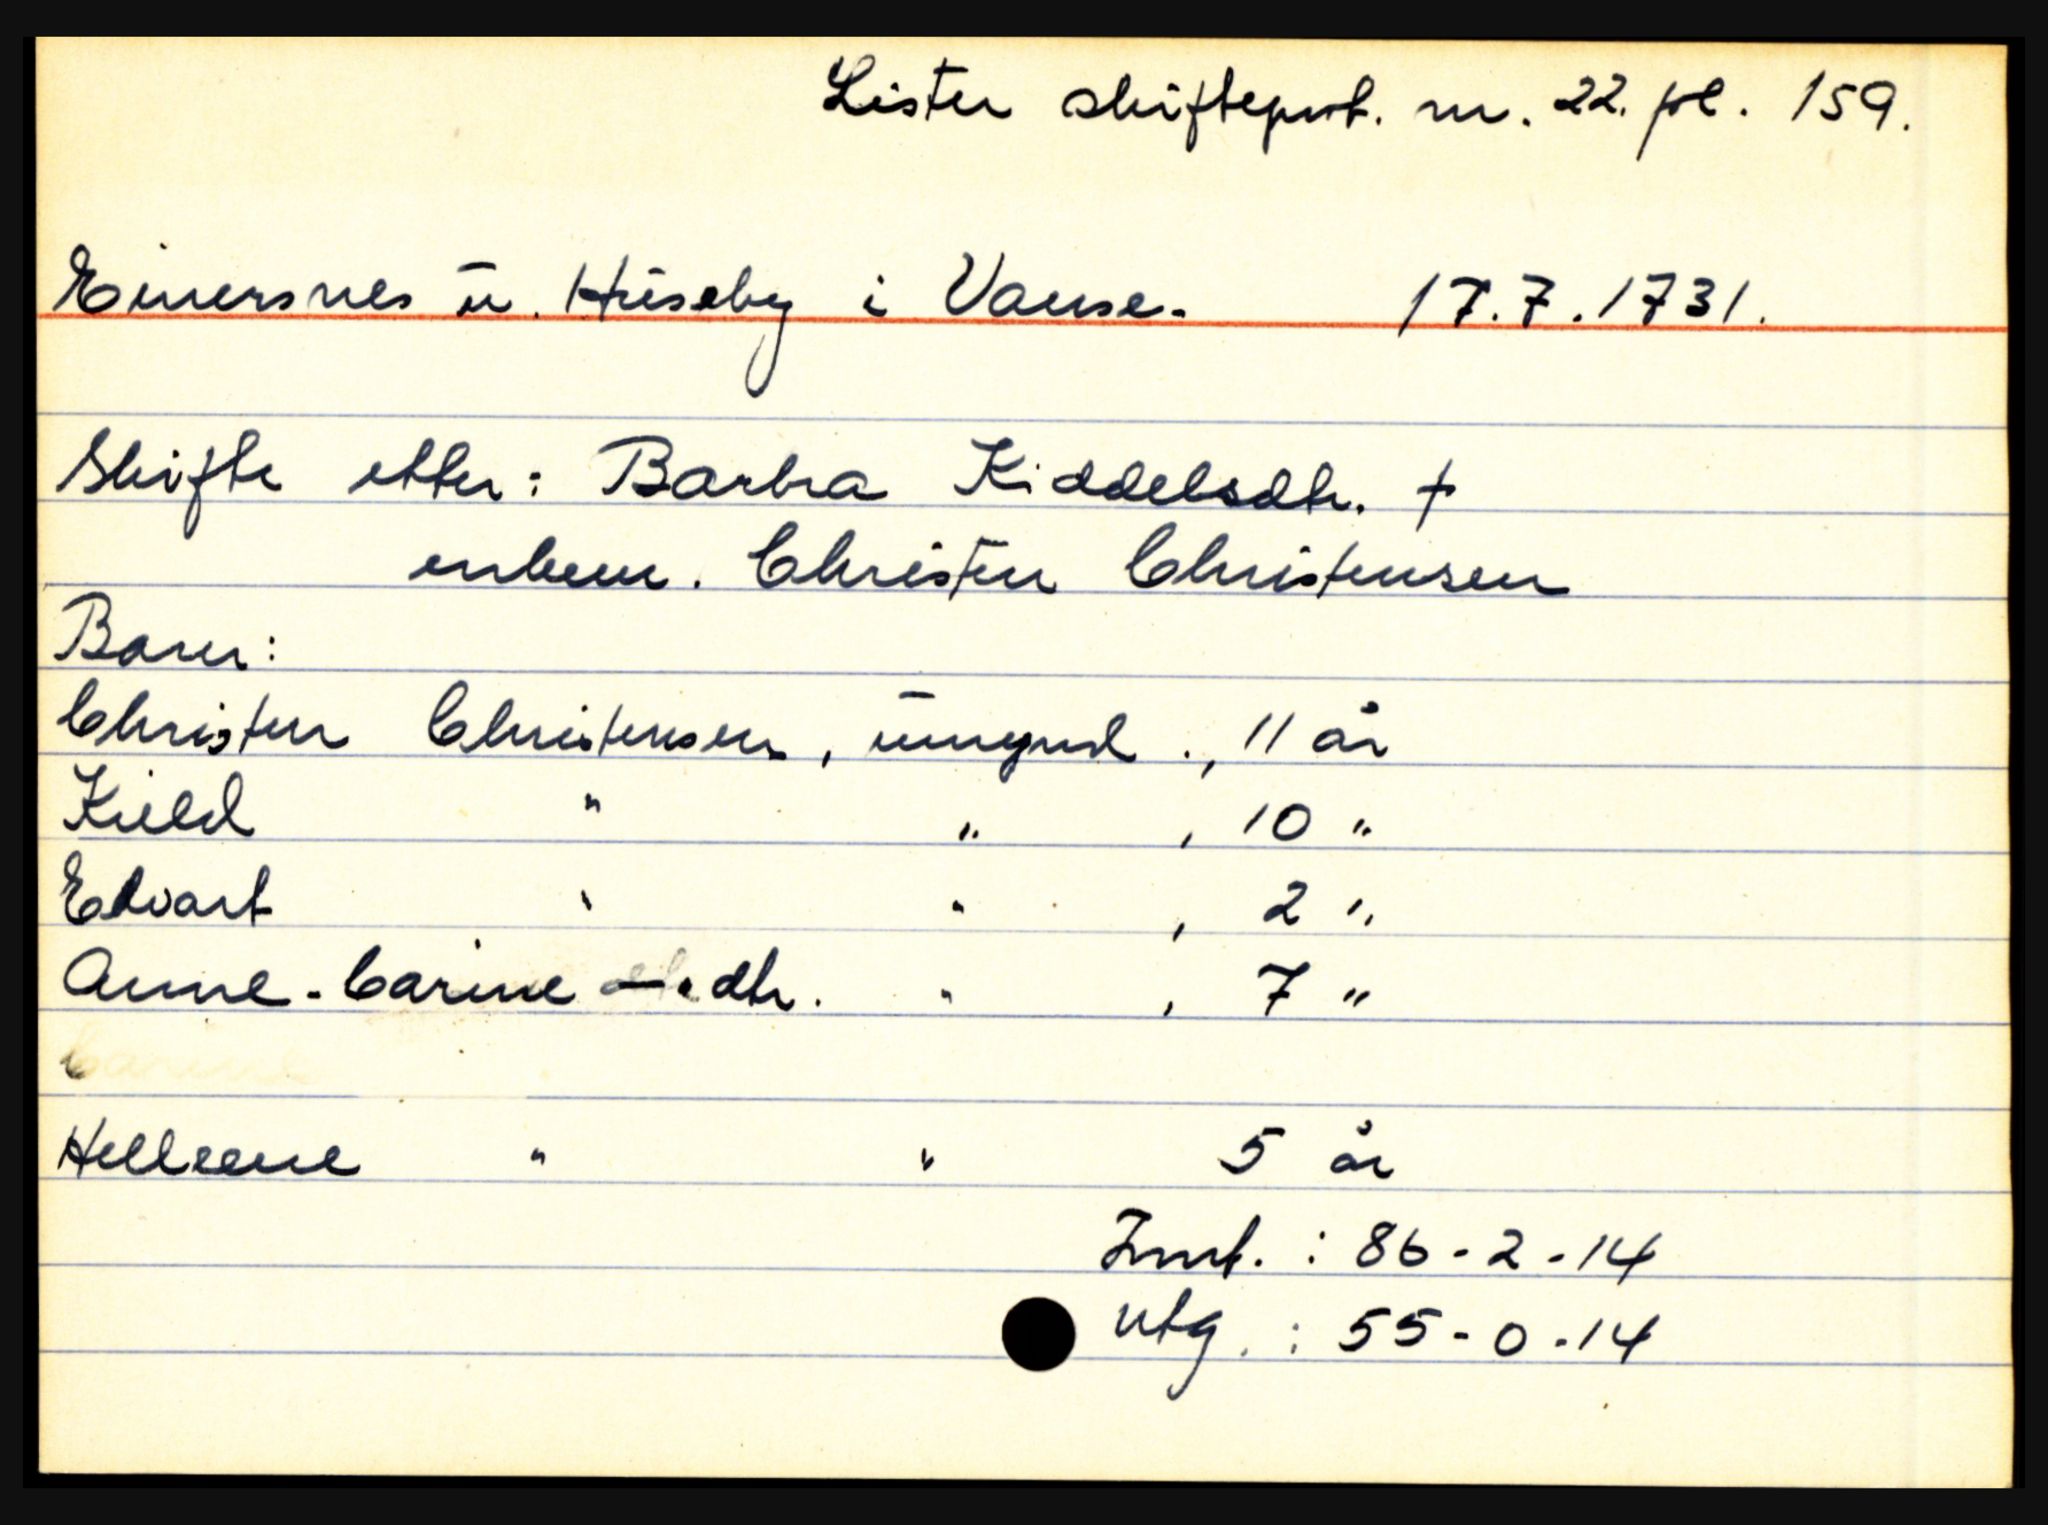 Lister skifteprot. nr. 22. fol. 159.
Einersnes u. Huseby i Vanse. 17.7.1731.
Skifte etter: Barbra Kiddelsdtr. †
enkem. Christen Christensen
Barn:
Christen Christensen, umynd., 11 år
Kield " " , 10 "
Edvart " " , 2 "
Anne-Carine —"dtr. " , 7 "
Carine
Helleene " " 5 år
Innt. : 86-2-14
Utg. : 55-0-14